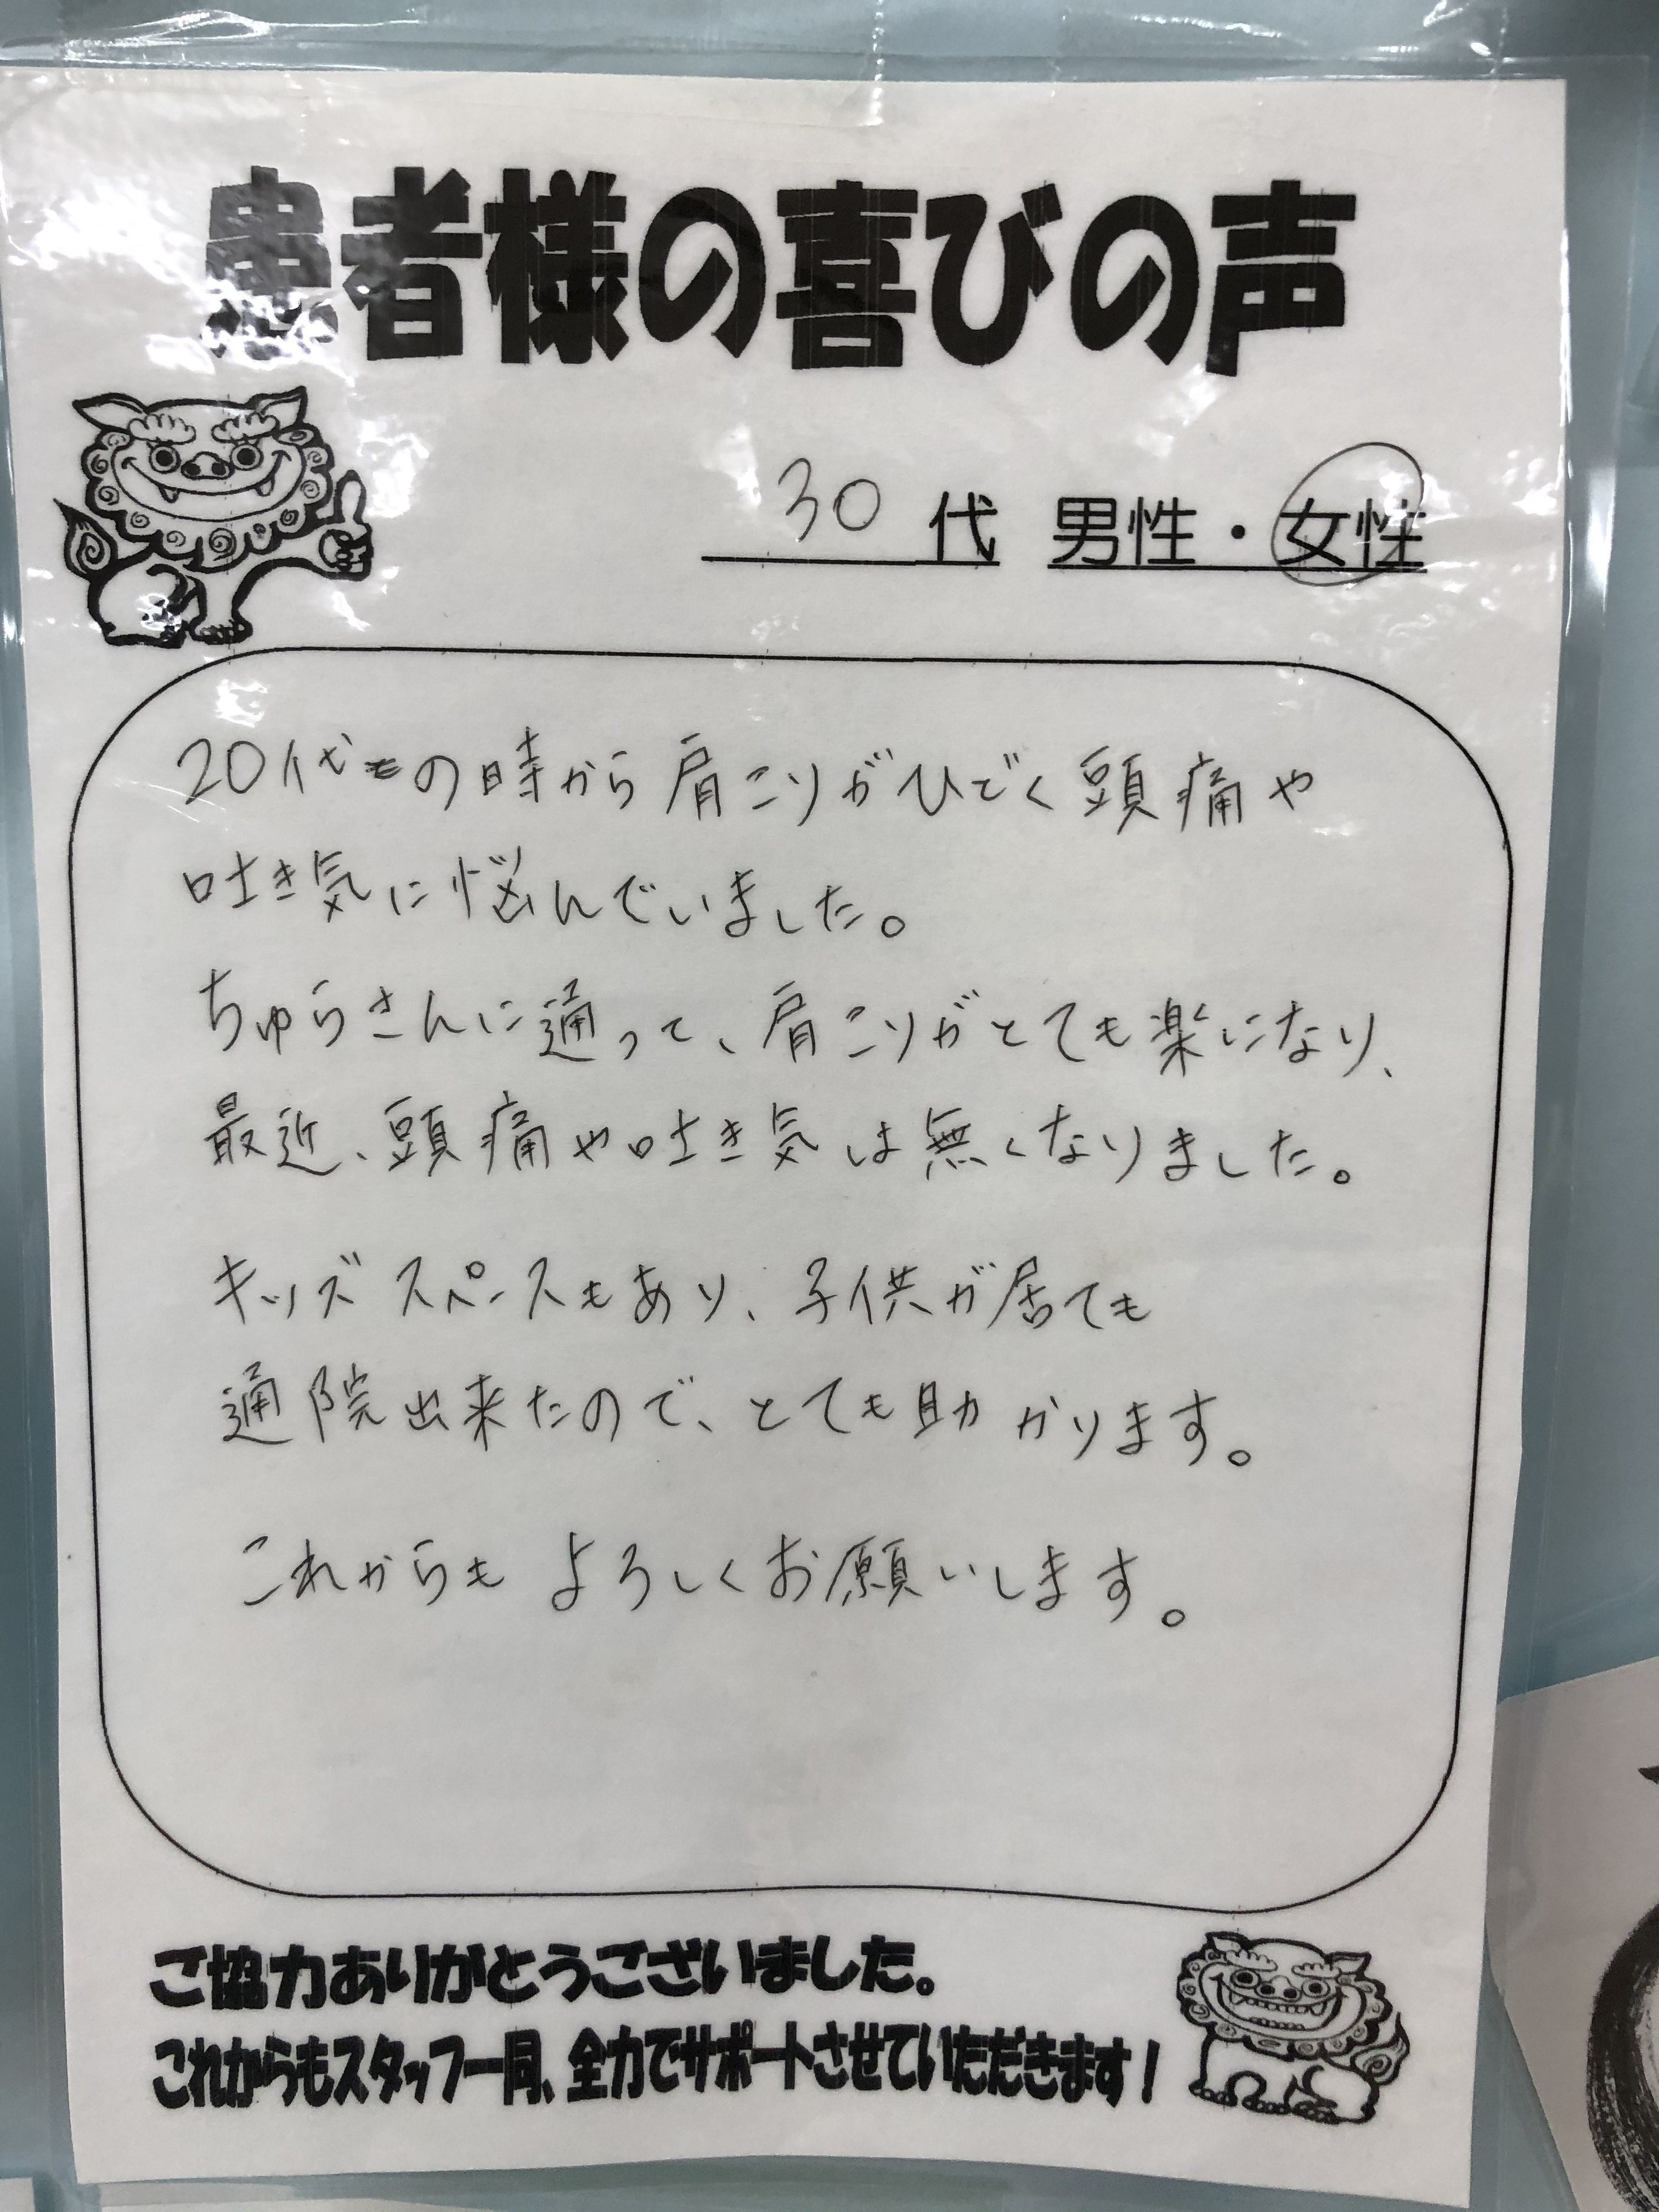 患者様の喜びの声
30代 男性・女性
20代の時から肩こりがひどく頭痛や
吐き気に悩んでいました。
ちゅらさんに通って、肩こりがとても楽になり、
最近、頭痛や吐き気は無くなりました。
キッズスペースもあり、子供が居ても
通院出来たので、とても助かります。
これからもよろしくお願いします。
ご協力ありがとうございました。
これからもスタッフ一同、全力でサポートさせていただきます!